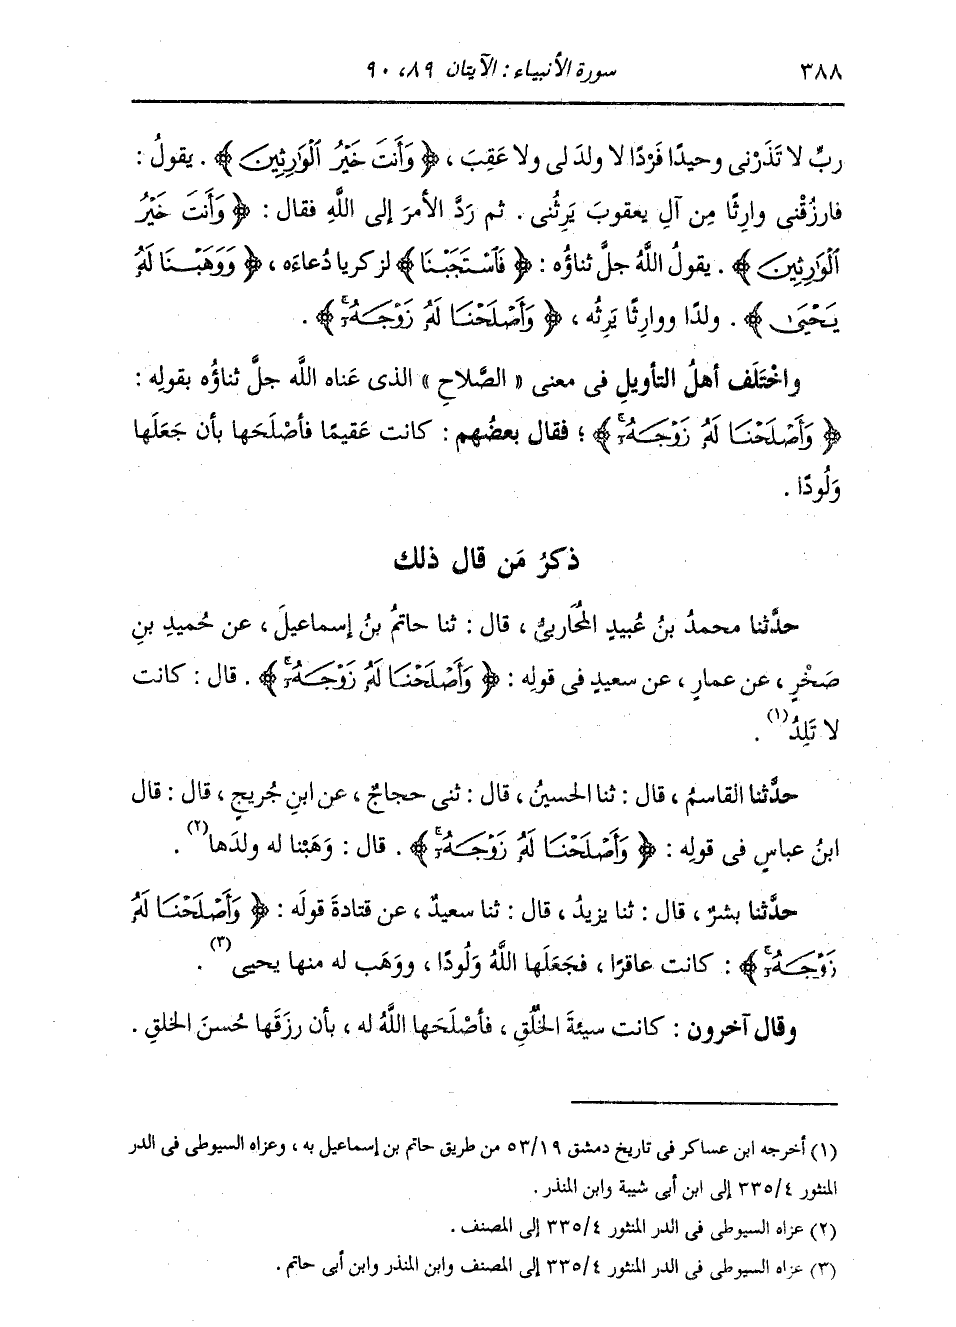 ٣٨٨ سورة الأنبياء : الآيتان ٨٩، ٩٠
ربِّ لا تَذَرْنى وحيدًا فَرْدًا لا ولدَ لى ولا عَقِبَ ، ﴿ وَأَنتَ خَيْرُ ٱلْوَٰرِثِينَ ﴾ . يقولُ :
فارزُقْنى وارِثًا مِن آلِ يعقوبَ يَرِثُنى . ثم رَدَّ الأمرَ إلى اللَّهِ فقال : ﴿ وَأَنتَ خَيْرُ
ٱلْوَٰرِثِينَ ﴾ . يقولُ اللَّهُ جلَّ ثناؤُه : ﴿ فَٱسْتَجَبْنَا ﴾ لزكريا دُعاءَه ، ﴿ وَوَهَبْنَا لَهُۥ
يَحْيَىٰ ﴾ . ولدًا ووارِثًا يَرِثُه ، ﴿ وَأَصْلَحْنَا لَهُۥ زَوْجَهُۥٓ ﴾ .
واخْتَلَف أهلُ التأويلِ فى معنى « الصَّلاحِ » الذى عَناه اللَّه جلَّ ثناؤُه بقولِه :
﴿ وَأَصْلَحْنَا لَهُۥ زَوْجَهُۥٓ ﴾ ؛ فقال بعضُهم : كانت عَقيمًا فأصْلَحَها بأن جَعَلَها
وَلُودًا .
ذكرُ مَن قال ذلك
حدَّثنا محمدُ بنُ عُبيدٍ المُحَاربىُّ ، قال : ثنا حاتمُ بنُ إسماعيلَ ، عن حُميدِ بنِ
صَخْرٍ ، عن عمارٍ ، عن سعيدٍ فى قولِه : ﴿ وَأَصْلَحْنَا لَهُۥ زَوْجَهُۥٓ ﴾ . قال : كانت
لا تَلِدُ (١) .
حدَّثنا القاسمُ ، قال : ثنا الحسينُ ، قال : ثنى حجاجٌ ، عن ابنِ جُريجٍ ، قال : قال
ابنُ عباسٍ فى قولِه : ﴿ وَأَصْلَحْنَا لَهُۥ زَوْجَهُۥٓ ﴾ . قال : وَهَبْنا له ولدَها (٢) .
حدَّثنا بشرٌ ، قال : ثنا يزيدُ ، قال : ثنا سعيدٌ ، عن قتادةَ قولَه : ﴿ وَأَصْلَحْنَا لَهُۥ
زَوْجَهُۥٓ ﴾ : كانت عاقرًا ، فجَعَلَها اللَّهُ وَلُودًا ، ووهَب له منها يحيى (٣) .
وقال آخرون : كانت سيئةَ الخُلُقِ ، فأصْلَحَها اللَّهُ له ، بأن رزَقَها حُسنَ الخلقِ .
(١) أخرجه ابن عساكر فى تاريخ دمشق ٥٣/١٩ من طريق حاتم بن إسماعيل به ، وعزاه السيوطى فى الدر
المنثور ٣٣٥/٤ إلى ابن أبى شيبة وابن المنذر .
(٢) عزاه السيوطى فى الدر المنثور ٣٣٥/٤ إلى المصنف .
(٣) عزاه السيوطى فى الدر المنثور ٣٣٥/٤ إلى المصنف وابن المنذر وابن أبى حاتم .